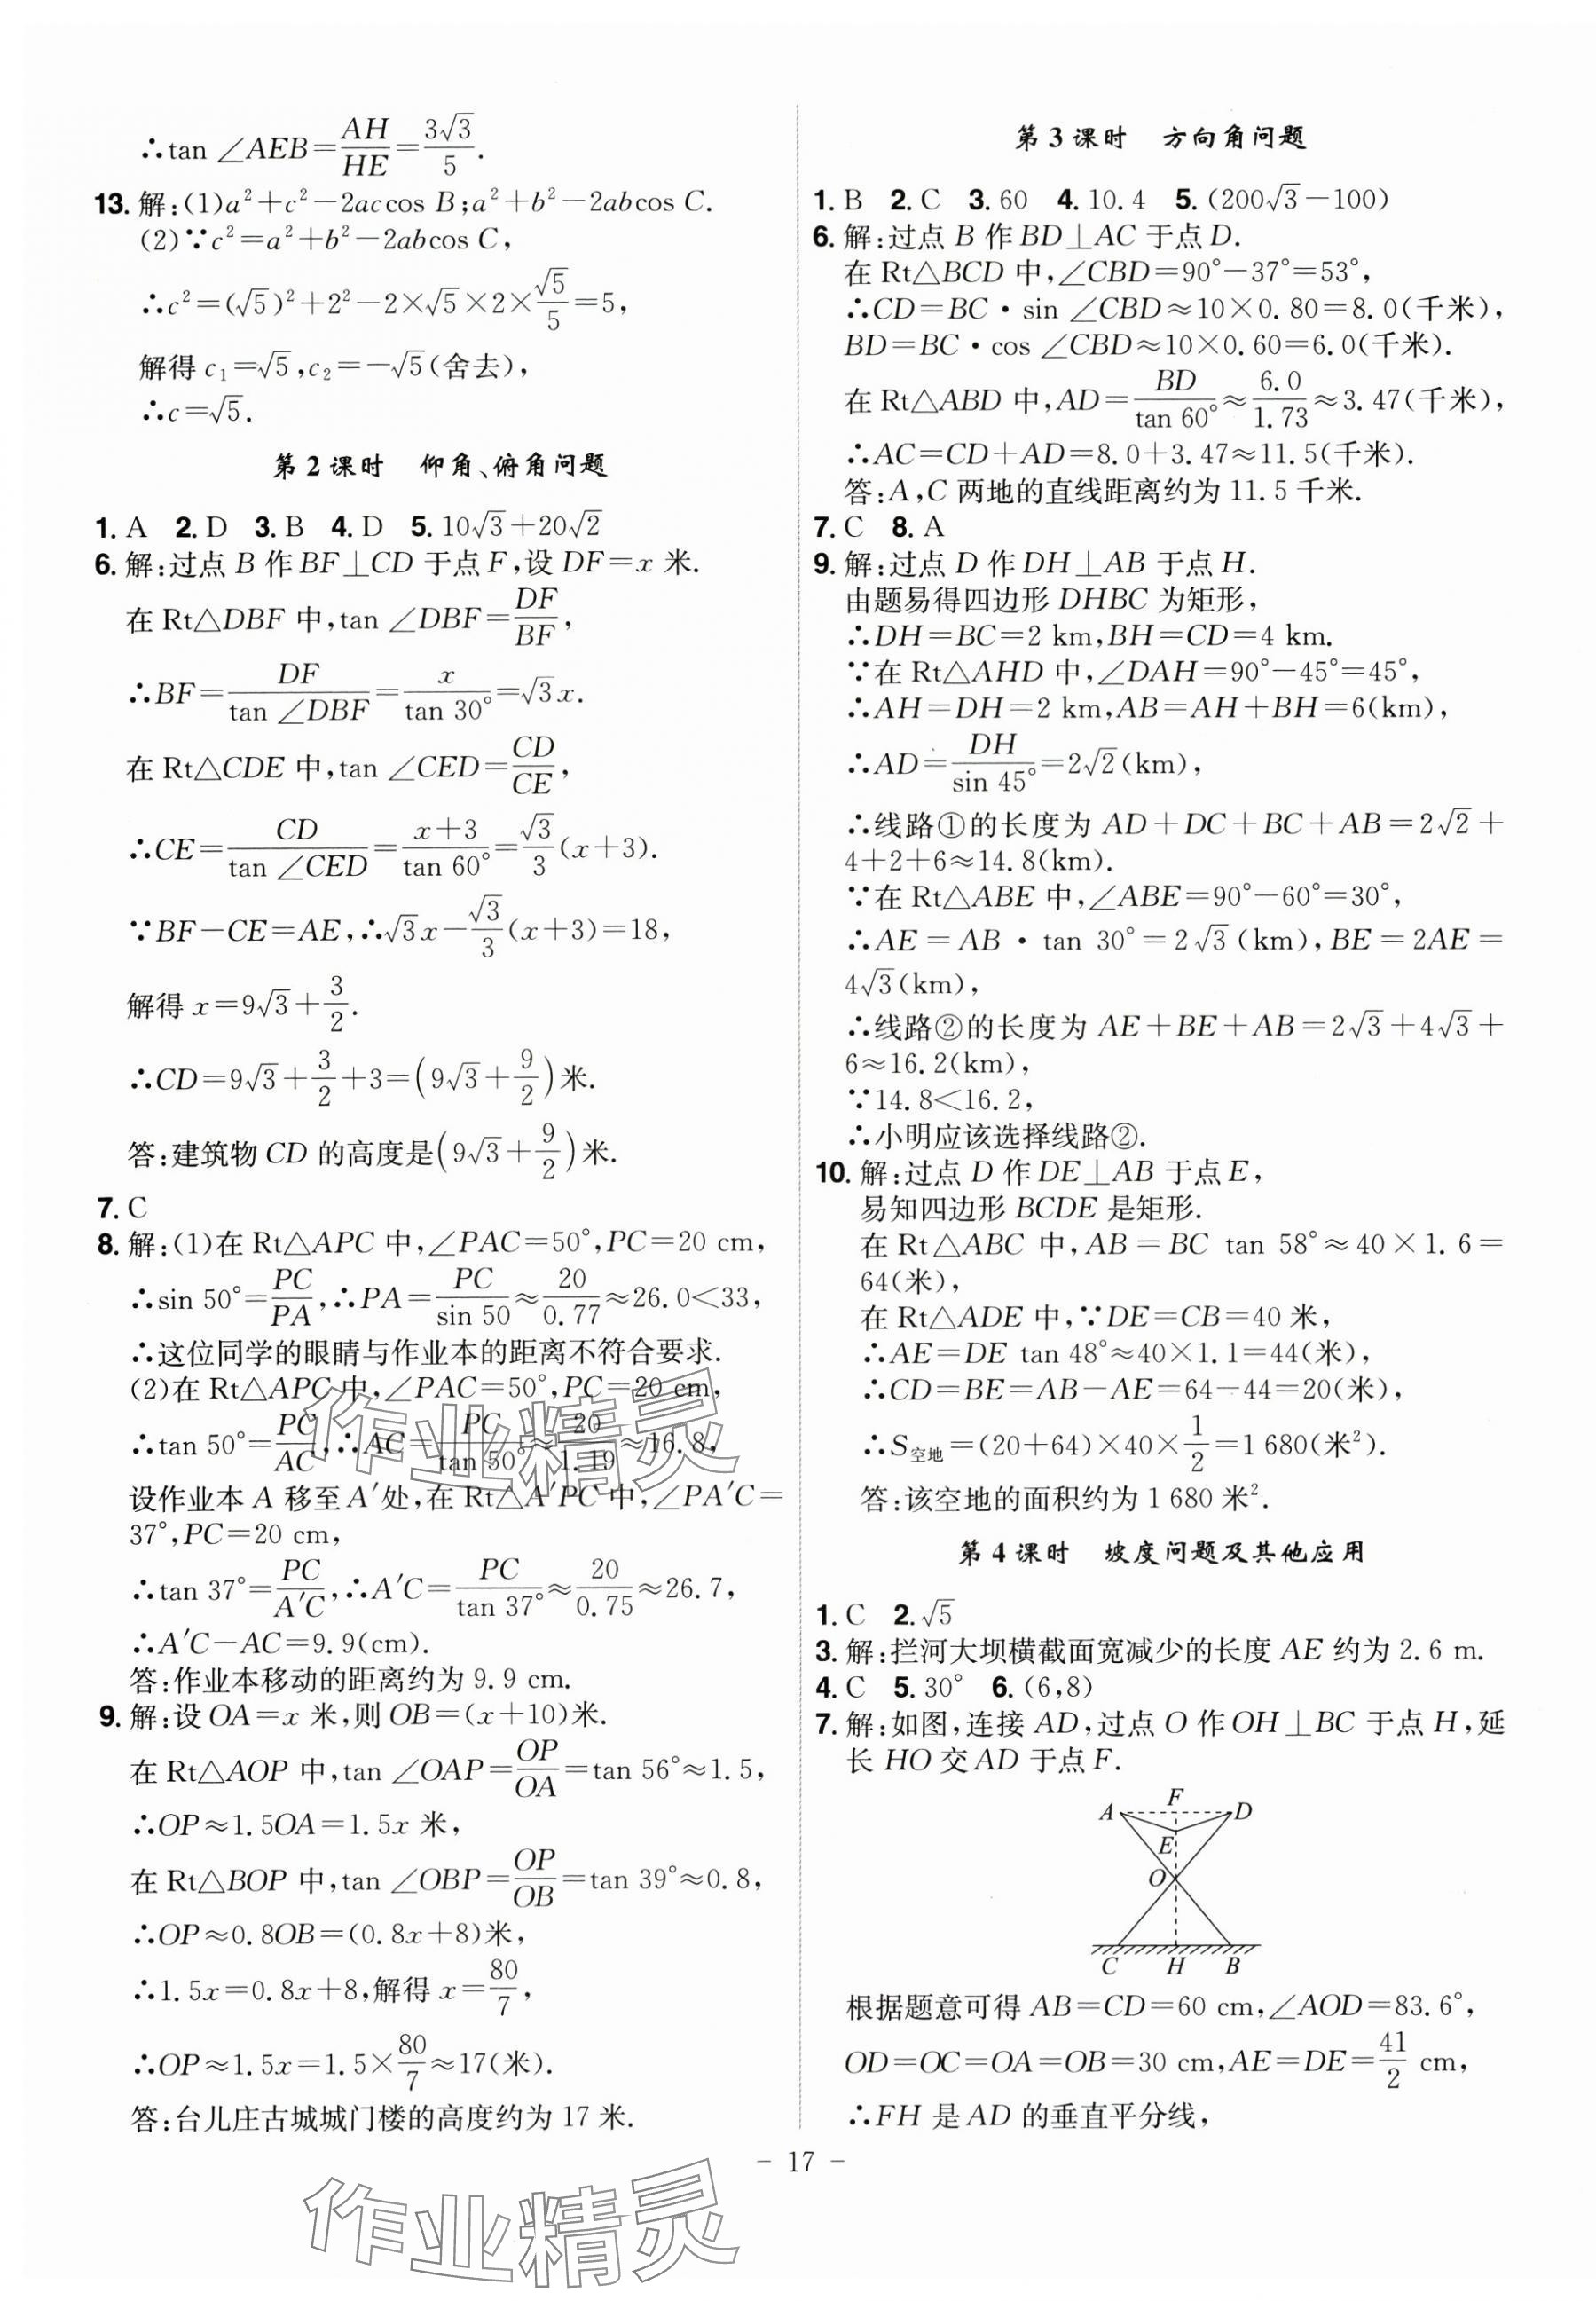 ∴tan ∠AEB=AH/HE=3√3/5.
13. 解:(1)a²+c²-2accos B;a²+b²-2abcos C.
(2)∵c²=a²+b²-2abcos C,
∴c²=(√5)²+2²-2×√5×2×√5/5=5,
解得 c₁=√5,c₂=-√5(舍去),
∴c=√5.
第2课时 仰角、俯角问题
1. A 2. D 3. B 4. D 5. 10√3+20√2
6. 解:过点 B 作 BF⊥CD 于点 F,设 DF=x 米.
在 Rt△DBF 中,tan ∠DBF=DF/BF,
∴BF=DF/tan ∠DBF=x/tan 30°=√3x.
在 Rt△CDE 中,tan ∠CED=CD/CE,
∴CE=CD/tan ∠CED=x+3/tan 60°=√3/3(x+3).
∵BF-CE=AE,∴√3x-√3/3(x+3)=18,
解得 x=9√3+3/2.
∴CD=9√3+3/2+3=(9√3+9/2)米.
答:建筑物 CD 的高度是(9√3+9/2)米.
7. C
8. 解:(1)在 Rt△APC 中,∠PAC=50°,PC=20 cm,
∴sin 50°=PC/PA,∴PA=PC/sin 50≈20/0.77≈26.0<33,
∴这位同学的眼睛与作业本的距离不符合要求.
(2)在 Rt△APC 中,∠PAC=50°,PC=20 cm,
∴tan 50°=PC/AC,∴AC=PC/tan 50°≈20/1.19≈16.8,
设作业本 A 移至 A′处,在 Rt△A′PC 中,∠PA′C=
37°,PC=20 cm,
∴tan 37°=PC/A′C,∴A′C=PC/tan 37°≈20/0.75≈26.7,
∴A′C-AC=9.9(cm).
答:作业本移动的距离约为 9.9 cm.
9. 解:设 OA=x 米,则 OB=(x+10)米.
在 Rt△AOP 中,tan ∠OAP=OP/OA=tan 56°≈1.5,
∴OP≈1.5OA=1.5x 米,
在 Rt△BOP 中,tan ∠OBP=OP/OB=tan 39°≈0.8,
∴OP≈0.8OB=(0.8x+8)米,
∴1.5x=0.8x+8,解得 x=80/7,
∴OP≈1.5x=1.5×80/7≈17(米).
答:台儿庄古城城门楼的高度约为 17 米.
第3课时 方向角问题
1. B 2. C 3. 60 4. 10.4 5. (200√3-100)
6. 解:过点 B 作 BD⊥AC 于点 D.
在 Rt△BCD 中,∠CBD=90°-37°=53°,
∴CD=BC·sin ∠CBD≈10×0.80=8.0(千米),
BD=BC·cos ∠CBD≈10×0.60=6.0(千米).
在 Rt△ABD 中,AD=BD/tan 60°≈6.0/1.73≈3.47(千米),
∴AC=CD+AD=8.0+3.47≈11.5(千米).
答:A,C 两地的直线距离约为 11.5 千米.
7. C 8. A
9. 解:过点 D 作 DH⊥AB 于点 H.
由题易得四边形 DHBC 为矩形,
∴DH=BC=2 km,BH=CD=4 km.
∵在 Rt△AHD 中,∠DAH=90°-45°=45°,
∴AH=DH=2 km,AB=AH+BH=6(km),
∴AD=DH/sin 45°=2√2(km),
∴线路①的长度为 AD+DC+BC+AB=2√2+
4+2+6≈14.8(km).
∵在 Rt△ABE 中,∠ABE=90°-60°=30°,
∴AE=AB·tan 30°=2√3(km),BE=2AE=
4√3(km),
∴线路②的长度为 AE+BE+AB=2√3+4√3+
6≈16.2(km),
∵14.8<16.2,
∴小明应该选择线路②.
10. 解:过点 D 作 DE⊥AB 于点 E,
易知四边形 BCDE 是矩形.
在 Rt△ABC 中,AB=BC tan 58°≈40×1.6=
64(米),
在 Rt△ADE 中,∵DE=CB=40 米,
∴AE=DE tan 48°≈40×1.1=44(米),
∴CD=BE=AB-AE=64-44=20(米),
∴S空地=(20+64)×40×1/2=1 680(米²).
答:该空地的面积约为 1 680 米².
第4课时 坡度问题及其他应用
1. C 2. √5
3. 解:拦河大坝横截面宽减少的长度 AE 约为 2.6 m.
4. C 5. 30° 6. (6,8)
7. 解:如图,连接 AD,过点 O 作 OH⊥BC 于点 H,延
长 HO 交 AD 于点 F.
F
A D
E
O
C H B
根据题意可得 AB=CD=60 cm,∠AOD=83.6°,
OD=OC=OA=OB=30 cm,AE=DE=41/2 cm,
∴FH 是 AD 的垂直平分线,
- 17 -
作业精灵
作业精灵